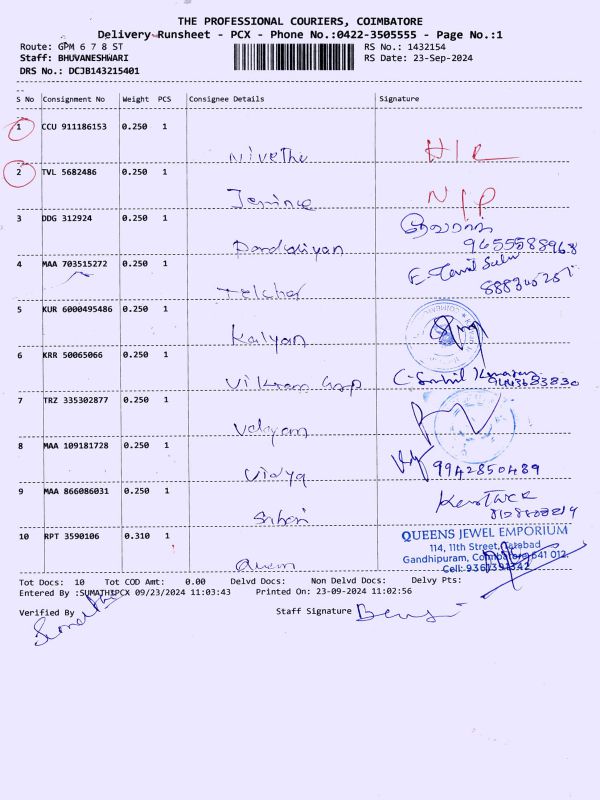 THE PROFESSIONAL COURIERS, COIMBATORE
Delivery Runsheet - PCX - Phone No.:0422-3505555 - Page No.:1
Route: GPM 6 7 8 ST RS No.: 1432154
Staff: BHUVANESHWARI RS Date: 23-Sep-2024
DRS No.: DCJB143215401
S No Consignment No Weight PCS Consignee Details Signature
1 CCU 911186153 0.250 1
Nivethu
2 TVL 5682486 0.250 1
N/P
3 DDG 312924 0.250 1
Pandiyan 9655588968
4 MAA 703515272 0.250 1
5 KUR 6000495486 0.250 1
Kalyan
6 KRR 50065066 0.250 1
Vikram
7 TRZ 335302877 0.250 1
8 MAA 109181728 0.250 1
Vidya 9942850489
9 MAA 866086031 0.250 1
10 RPT 3590106 0.310 1
QUEENS JEWEL EMPORIUM
114, 11th Street, Tatabad
Gandhipuram, Coimbatore 641 012.
Cell: 9361391342
Tot Docs: 10 Tot COD Amt: 0.00 Delvd Docs: Non Delvd Docs: Delvy Pts:
Entered By :SUMATHIPCX 09/23/2024 11:03:43 Printed On: 23-09-2024 11:02:56
Verified By Staff Signature